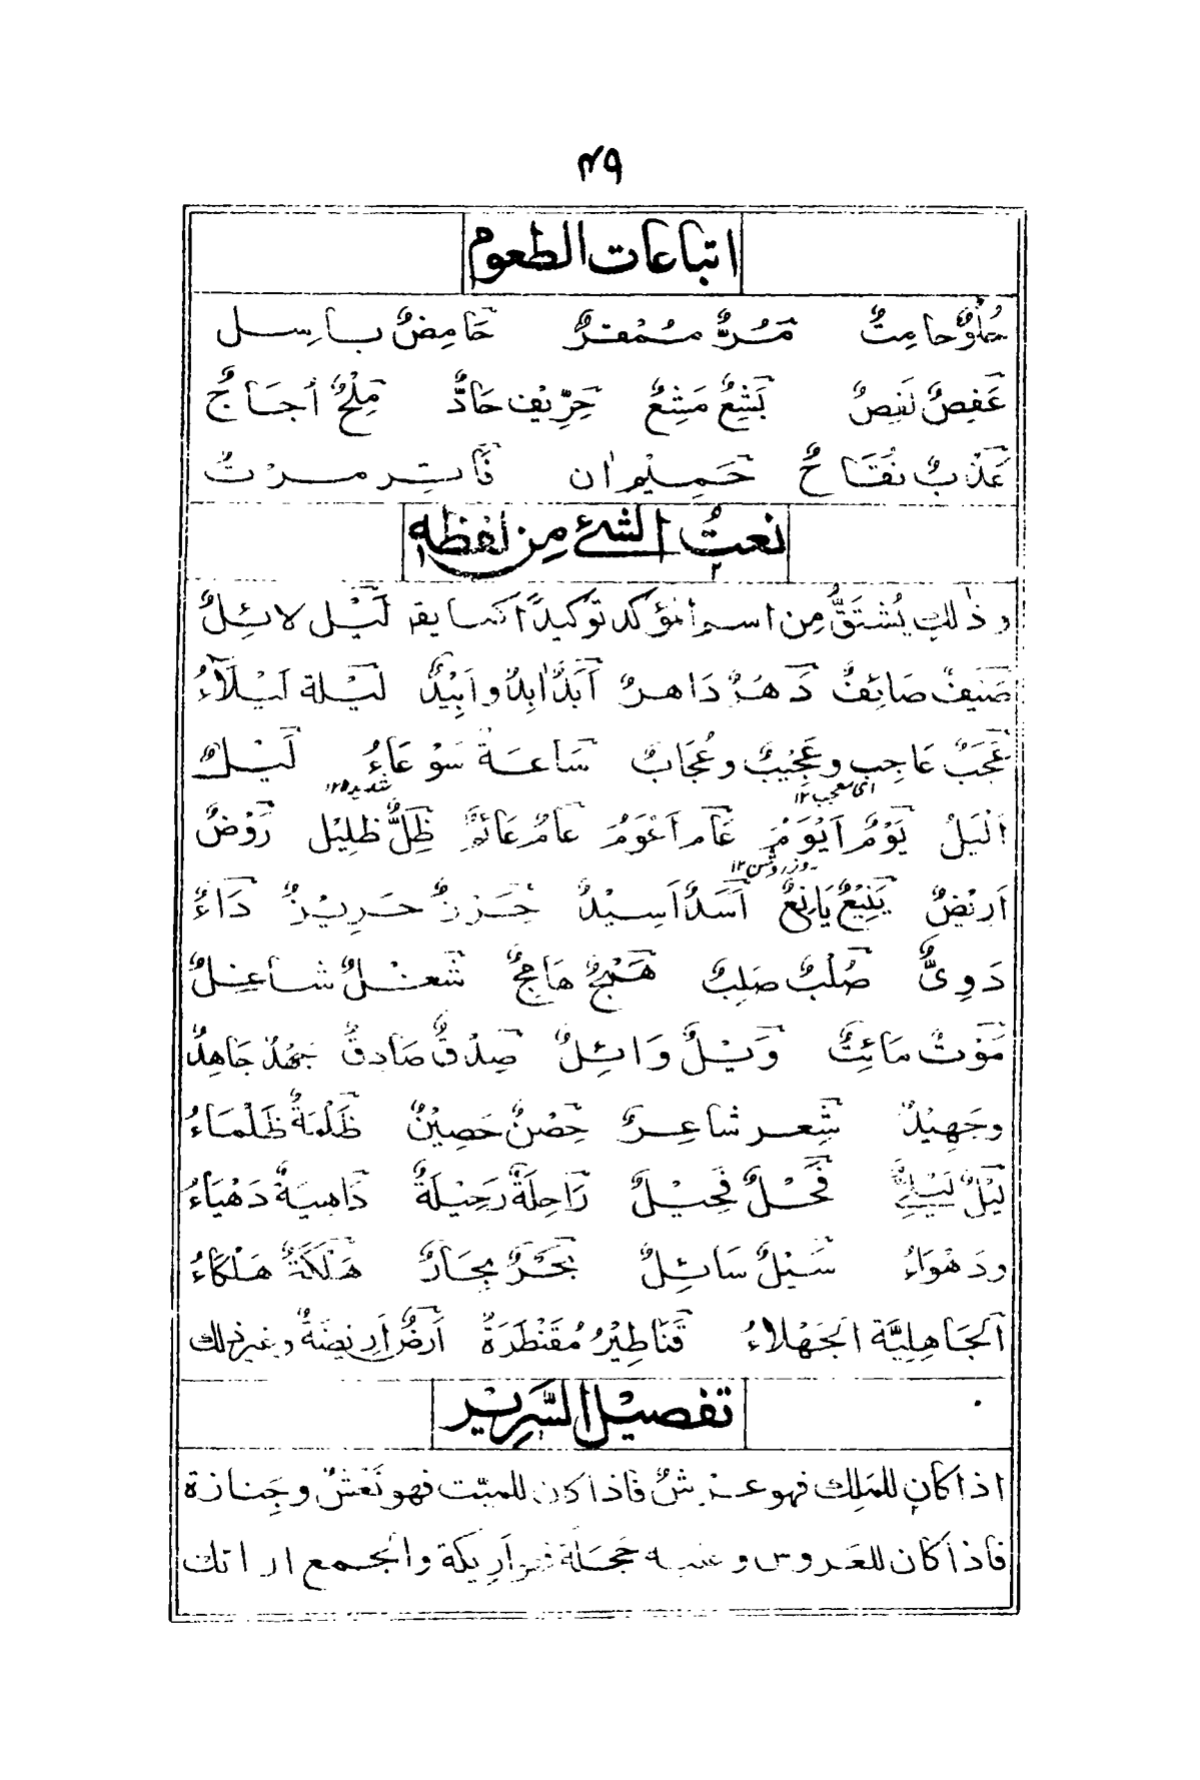 ۴۹
اتباعات الطعوم
حُلْوٌ حامِتٌ مُرٌّ مُمْقِرٌ حَامِضٌ بَاسِل
عَفِصٌ لَفِصٌ بَشِعٌ مَشِعٌ حِرِّيف حَادٌّ مِلْحٌ اُجَاجٌ
عَذْبٌ نُقَاحٌ حَمِيْم اٰن فَاتِر مرتٌ
نعتُ الشئ مِن لفظه
وذٰلك يُشتَقُّ مِن اسم المؤكد توكيدًا كما يقہ لَيْل لائِلٌ
صَيفٌ صَائِفٌ دَهْرٌ دَاهرٌ اَبَدٌ اٰبِدٌ واَبِيْدٌ لَيْلة لَيْلَآءُ
عَجَبٌ عَاجِب وعَجِيْبٌ وعُجَابٌ سَاعَةٌ سَوْعَاءُ لَيْلٌ
ای معجب ۱۲ شديدة ۱۲
اَلْيَلُ يَوْمٌ اَيْوَمُ عَام اَعْوَمُ عَامٌ عَائِمٌ ظِلٌّ ظَلِيْل رَوْضٌ
روز روشن ۱۲
اَرِيْضٌ يَنْعٌ يَانِعٌ اَسَدٌ اَسِيْدٌ حِرْزٌ حَرِيْزٌ دَاءٌ
دَوِىٌّ صُلْبٌ صَلِبٌ هَيْجٌ هَاجٌ شُغْلٌ شَاغِلٌ
مَوْتٌ مَائِتٌ وَيْلٌ وَائِلٌ صِدْقٌ صَادِقٌ جَهْدٌ جَاهِدٌ
وجَهِيْدٌ شِعر شاعِرٌ حِصْنٌ حَصِيْنٌ ظُلْمَةٌ ظَلْمَاءُ
لَيْلٌ فَحْلٌ فَحِيْلٌ رَاحِلَةٌ رَحِيْلَةٌ دَاهِيَةٌ دَهْيَاءُ
ودَهْوَاءُ سَيْلٌ سَائِلٌ بَحْرٌ هَلَكَةٌ هَلْكَاءُ
اَلجَاهِلِيَّة الجَهْلاءُ قَنَاطِيْرُ مُقَنْطَرَةٌ اَرضٌ اَرِيضَةٌ وغير ذلك
تفصيل السَّرِيْر
اذا كان للمَلِك فهو عرشٌ فاذا كان للميّت فهو نَعْشٌ وجَنازة
فاذا كان للعَروس وعليه حَجَلَة فهو اَرِيكة والجمع ارائك